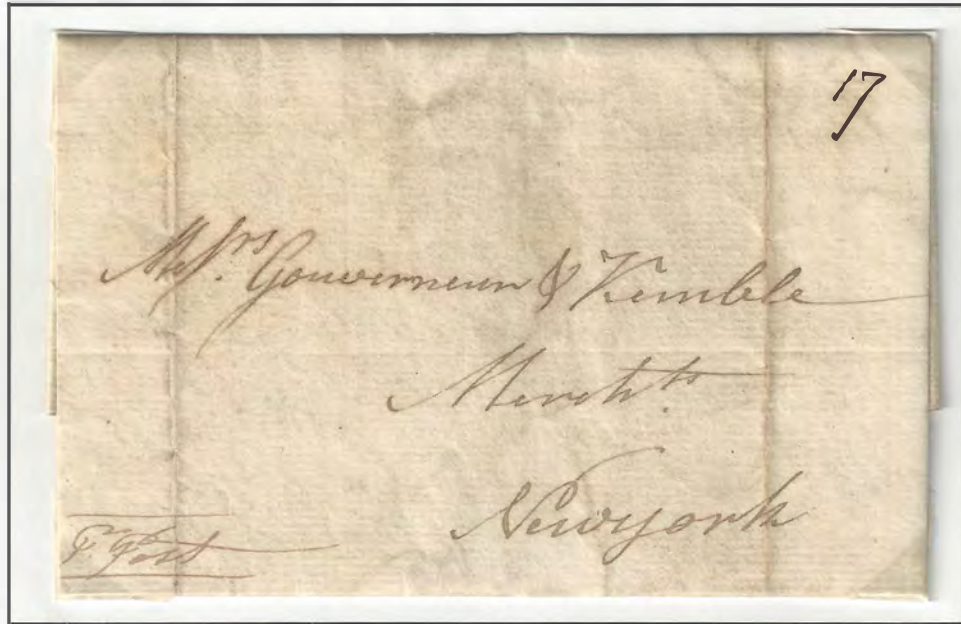 17
Messrs. Gouverneur & Kemble
Mercht.ts
Newyork
Pr Post